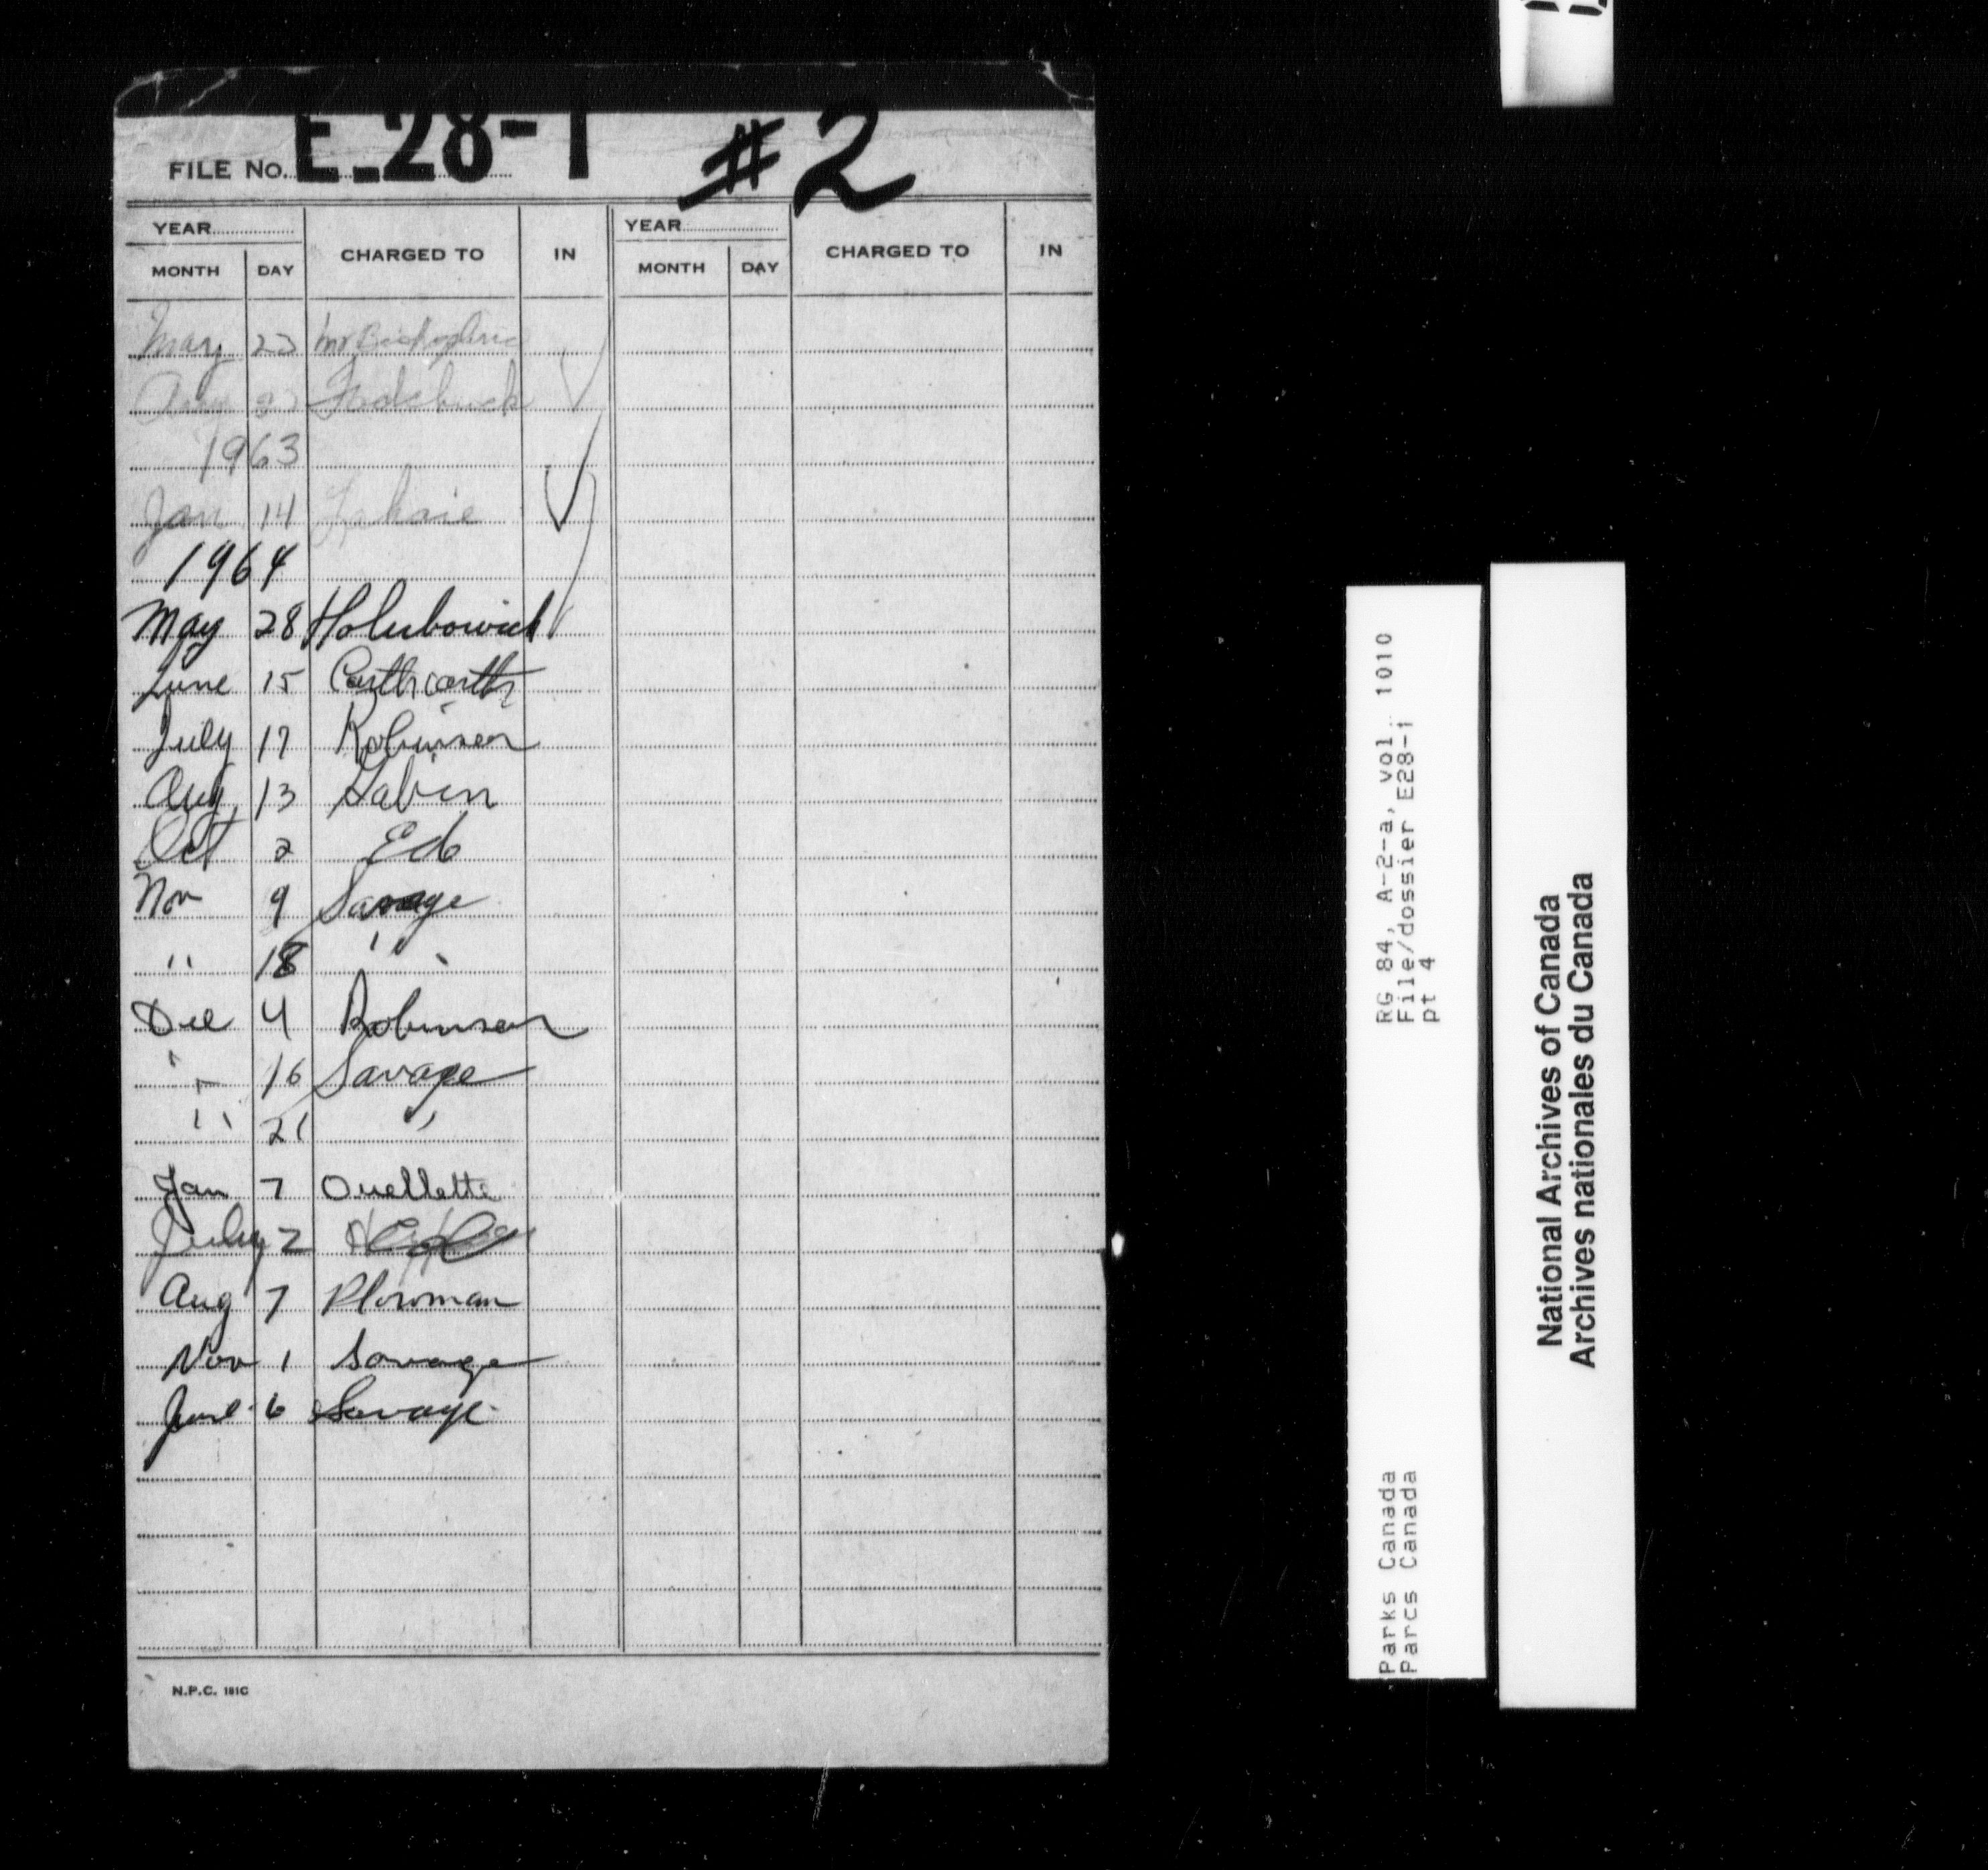 FILE No. E-28-1 #2
YEAR YEAR
MONTH DAY CHARGED TO IN MONTH DAY CHARGED TO IN
May 23
27
1963
Jan 14 Lahaie
1964
May 28 Holubowich
June 15
July 17 Robinson
Aug 13
Oct 2 Ed
Nov 9 Savage
" 18 " "
Dec 4 Robinson
" 16 Savage
" 21 "
Jan 7 Ouellette
July 2
Aug 7 Plowman
Nov 1 Savage
June 6 Savage
N.P.C. 181C
RG 84, A-2-a, vol. 1010
File/dossier E28-1
pt 4
Parks Canada
Parcs Canada
National Archives of Canada
Archives nationales du Canada